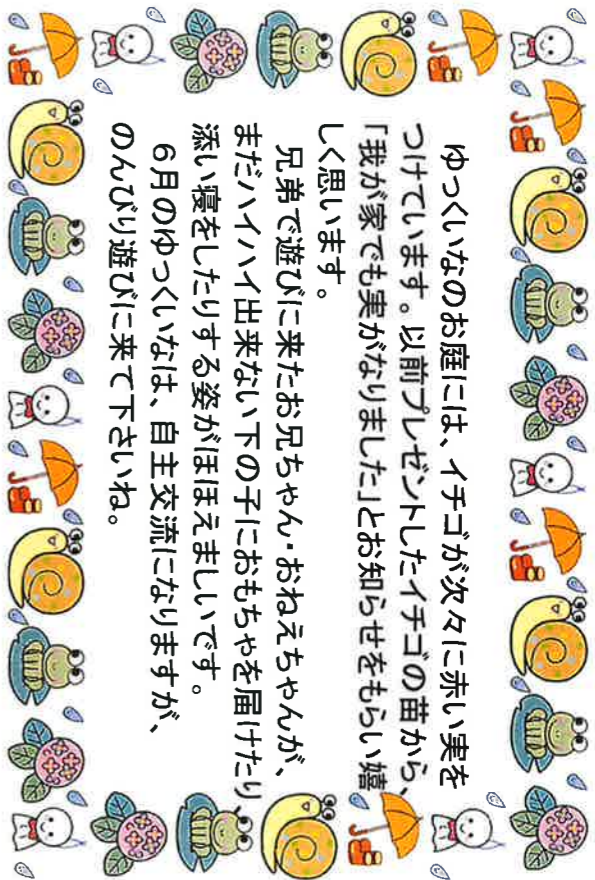 ゆっくいなのお庭には、イチゴが次々に赤い実を
つけています。以前プレゼントしたイチゴの苗から、
「我が家でも実がなりました」とお知らせをもらい嬉
しく思います。
兄弟で遊びに来たお兄ちゃん・おねえちゃんが、
まだハイハイ出来ない下の子におもちゃを届けたり、
添い寝をしたりする姿がほほえましいです。
6月のゆっくいなは、自主交流になりますが、
のんびり遊びに来て下さいね。